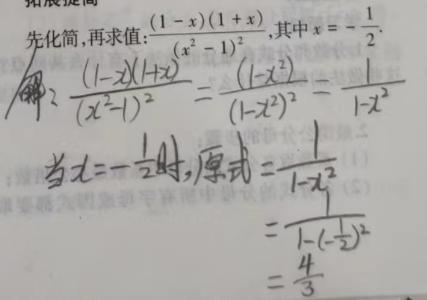 拓展提高
先化简,再求值:\frac{(1-x)(1+x)}{(x^2-1)^2},其中 x=-\frac{1}{2}.
解: \frac{(1-x)(1+x)}{(x^2-1)^2} = \frac{(1-x^2)}{(1-x^2)^2} = \frac{1}{1-x^2}
当x=-\frac{1}{2}时,原式=\frac{1}{1-x^2}
=\frac{1}{1-(-\frac{1}{2})^2}
=\frac{4}{3}